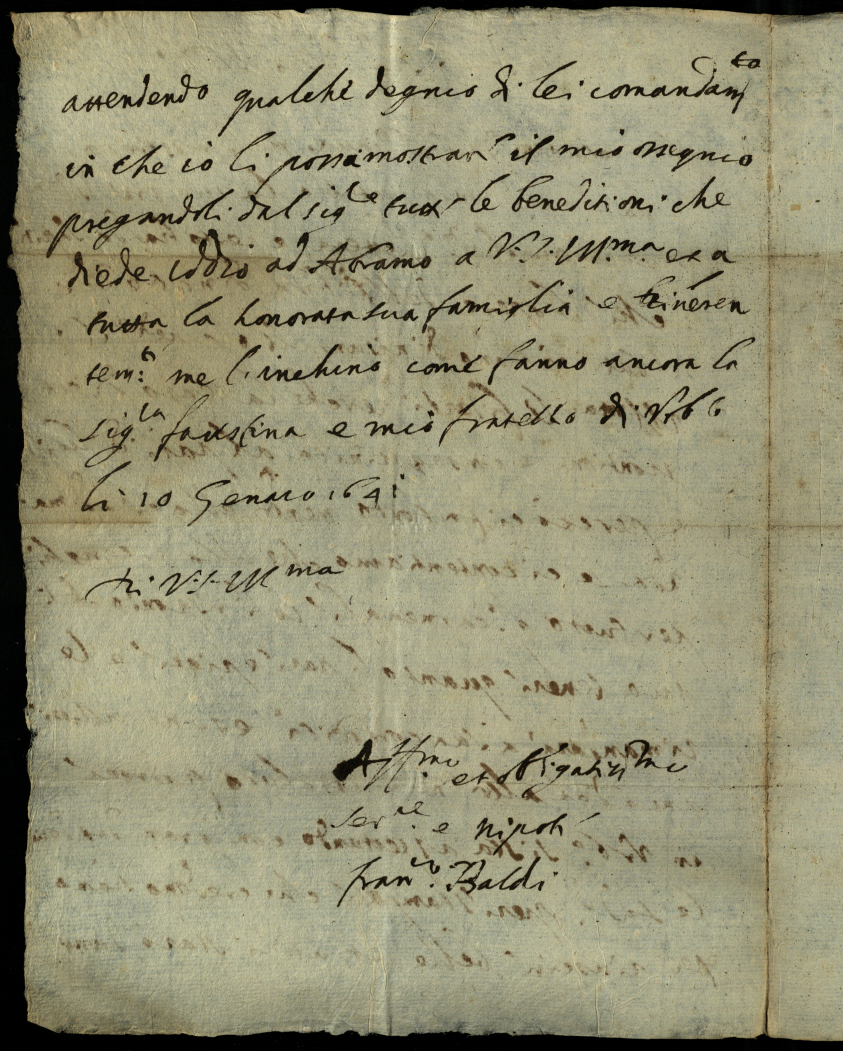 attendendo qualche degnio di lei comandam.to
in che io li possa mostrare il mio ossequio
pregandoli dal sig.re tutte le beneditioni che
diede iddio ad Abramo a V.S. Ill.ma et a
tutta la honorata sua famiglia e reveren
tem.te me l'inchino come fanno ancora la
sig.ra faustina e mio fratello di Urb.o
li 10 Genaro 1641
Di V.S. Ill.ma
Aff.mo et obligatiss.mo
ser.re e nipote
fran.co Baldi